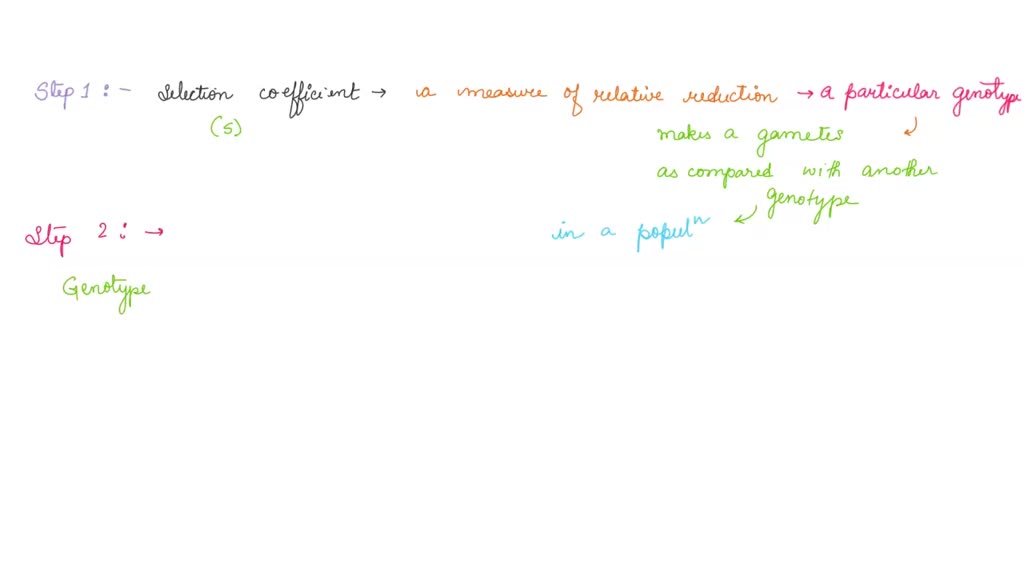 Step 1 :- Selection coefficient → a measure of relative reduction → a particular genotype
(s)
makes a gametes
as compared with another
genotype
Step 2 : → in a populⁿ
Genotype